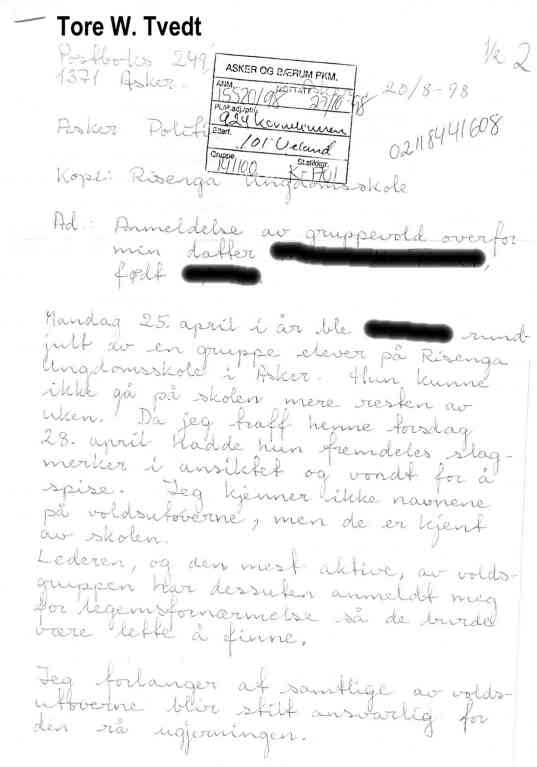 Tore W. Tvedt
1/2 2
Postboks 249
1371 Asker.
20/8-98
ASKER OG BÆRUM PKM.
ANM. MOTTATT
15520/98
Pl/P.adj/ptl:
924
Etterf.
101 Ueland
Gruppe Statistikkgr.
141100
02118441608
Asker Politi
Kopi: Risenga Ungdomsskole
Ad.: Anmeldelse av gruppevold overfor
min datter ,
født
Mandag 25. april i år ble rund-
jult av en gruppe elever på Risenga
Ungdomsskole i Asker. Hun kunne
ikke gå på skolen mere resten av
uken. Da jeg traff henne torsdag
28. april hadde hun fremdeles slag-
merker i ansiktet og vondt for å
spise. Jeg kjenner ikke navnene
på voldsutøverne, men de er kjent
av skolen.
Lederen, og den mest aktive, av volds-
gruppen har dessuten anmeldt meg
for legemsfornærmelse så de burde
være lette å finne.
Jeg forlanger at samtlige av volds-
utøverne blir stilt ansvarlig for
den rå ugjerningen.